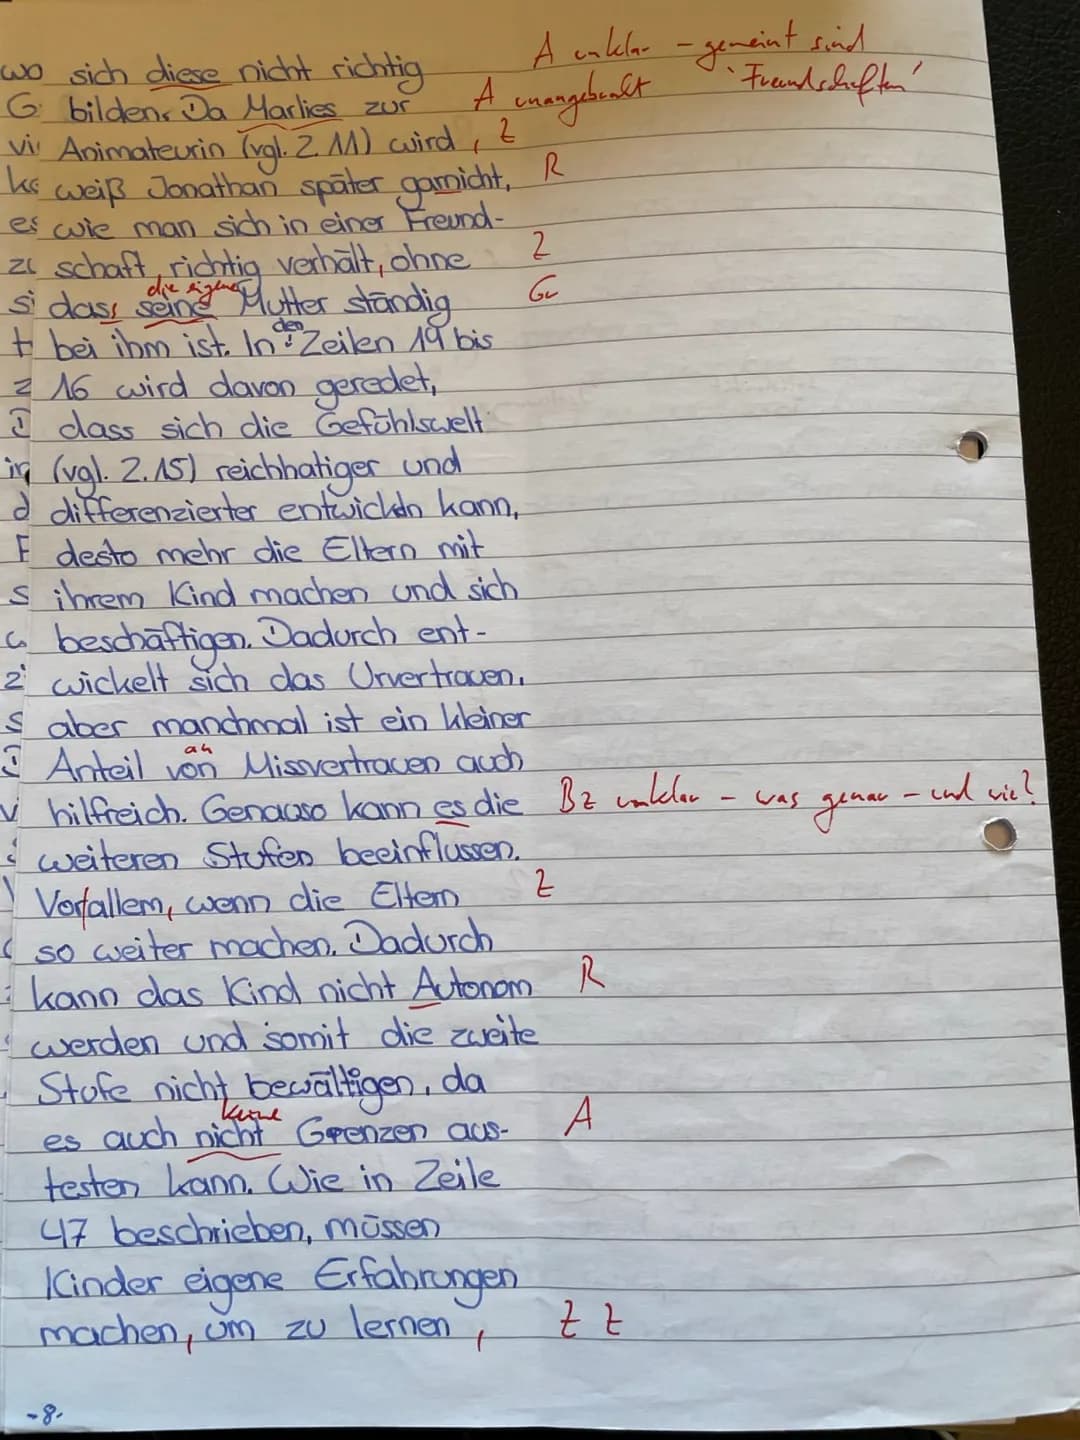 wo sich diese nicht richtig A unklar - gemeint sind 'Freundschaften'
G bilden. Da Marlies zur A unangebracht
vi Animateurin (vgl. Z. 11) wird, Z
ke weiß Jonathan später garnicht, R
es wie man sich in einer Freund-
zu schaft, richtig verhält, ohne Z
die eigene
si dass seine Mutter ständig Gr
den
t bei ihm ist. In Zeilen 19 bis
z 16 wird davon geredet,
D dass sich die Gefühlswelt
in (vgl. Z. 15) reichhatiger und
d differenzierter entwickeln kann,
F desto mehr die Eltern mit
S ihrem Kind machen und sich
beschäftigen. Dadurch ent-
z wickelt sich das Urvertrauen,
S aber manchmal ist ein kleiner
an
Anteil von Missvertrauen auch
v hilfreich. Genauso kann es die Bz unklar - was genau - und wie?
weiteren Stufen beeinflussen.
Vorfallem, wenn die Eltern Z
so weiter machen. Dadurch
kann das Kind nicht Autonom R
werden und somit die zweite
Stufe nicht bewältigen, da
keine
es auch nicht Grenzen aus- A
testen kann. Wie in Zeile
47 beschrieben, müssen
Kinder eigene Erfahrungen
machen, um zu lernen, Z Z
-8-